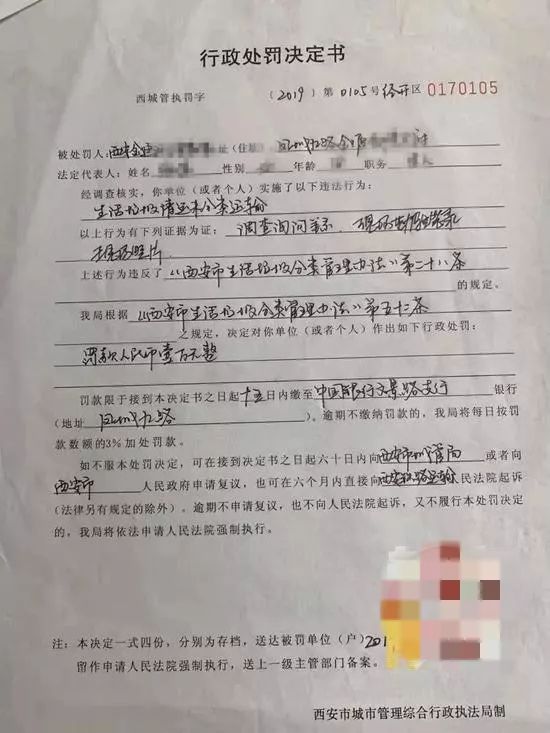 行政处罚决定书
西城管执罚字 (2019)第0105号经开区 0170105
被处罚人:西安金 址(住址) 凤城九路
法定代表人:姓名 性别 年龄 职务
经调查核实,你单位(或者个人)实施了以下违法行为:
生活垃圾清运未分类运输
以上行为有下列证据为证: 调查询问笔录、现场
现场照片
上述行为违反了《西安市生活垃圾分类管理办法》第二十八条
的规定。
我局根据《西安市生活垃圾分类管理办法》第五十二条
之规定,决定对你单位(或者个人)作出如下行政处罚:
罚款人民币壹万元整
罚款限于接到本决定书之日起十五日内缴至中国银行文景路支行银行
(地址 凤城九路 )。逾期不缴纳罚款的,我局将每日按罚
款数额的3%加处罚款。
如不服本处罚决定,可在接到决定书之日起六十日内向西安市城管局或者向
西安市人民政府申请复议,也可在六个月内直接向西安铁路运输人民法院起诉
(法律另有规定的除外)。逾期不申请复议,也不向人民法院起诉,又不履行本处罚决定
的,我局将依法申请人民法院强制执行。
注:本决定一式四份,分别为存档,送达被罚单位(户) 201
留作申请人民法院强制执行,送上一级主管部门备案。
西安市城市管理综合行政执法局制